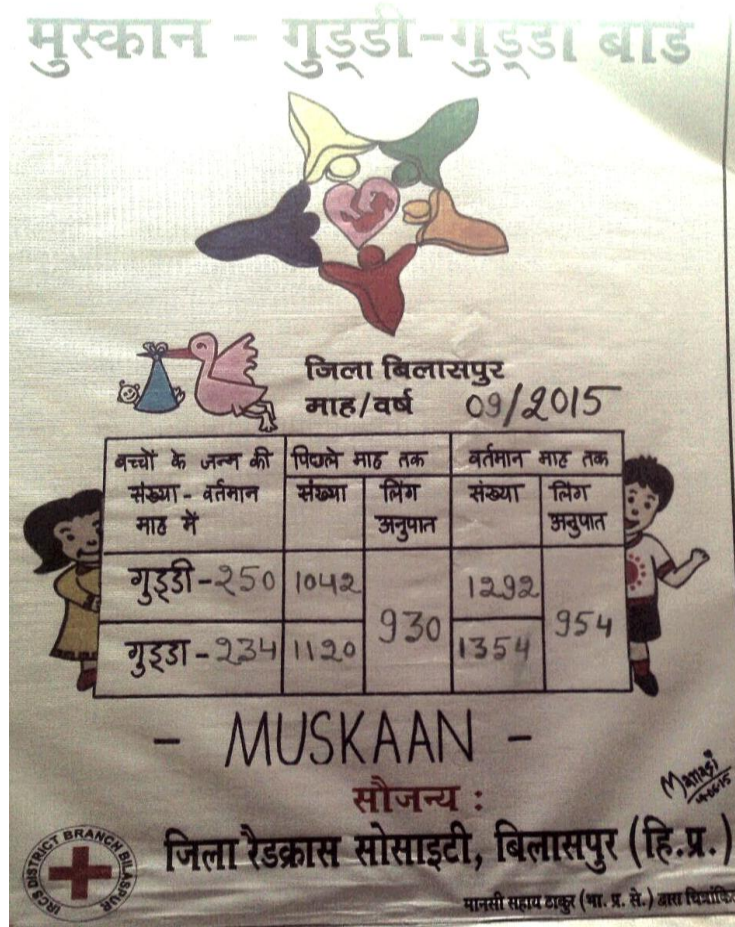 मुस्कान - गुड्डी-गुड्डा बोर्ड
जिला बिलासपुर
माह/वर्ष 09/2015
बच्चों के जन्म की संख्या - वर्तमान माह में
पिछले माह तक
वर्तमान माह तक
संख्या
लिंग अनुपात
संख्या
लिंग अनुपात
गुड्डी - 250 1042 930 1292 954
गुड्डा - 234 1120 1354
- MUSKAAN -
Manasi
सौजन्य :
जिला रैडक्रास सोसाइटी, बिलासपुर (हि.प्र.)
IRCS DISTRICT BRANCH BILASPUR
मानसी सहाय ठाकुर (भा. प्र. से.) द्वारा